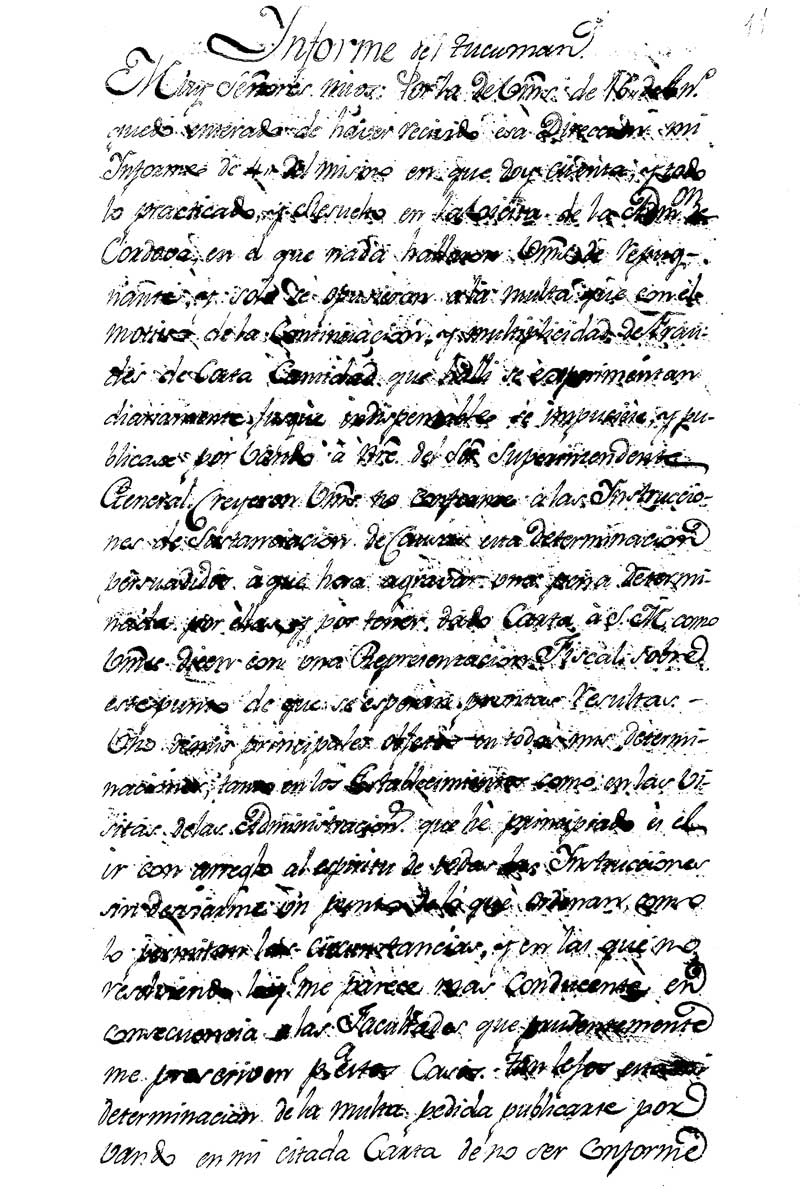 11
Informe del tucuman.
Muy Señores mios: Por la de Vms. de 16 de
quedo enterado de haver recivido esa Direccion mi
Informe de 4 del mismo en que doy cuenta, y todo
lo practicado, y Resuelto en la Visita de la Admon. de
Cordova, en el que nada hallaron Vms. de repug-
nante, y solo se opusieran a la multa que con el
motivo de la Continuacion, y multiplicidad de Frau-
des de Corta Cantidad que halli se experimentan
diariamente juzguè indispensable se impusiese, y pu-
blicase por Vando à Nre. del Sor. Superintendente
General. Creyeron Vms. no conforme a las Instruccio-
nes de Sustanciacion de Causas esta determinacion
persuadidos à que hera agravar una pena determi-
nada por ellas, y por tener dado Carta à S. M. como
Vms. dicen con una Representacion Fiscal sobre
este punto de que se esperan prontas resultas.-
Uno de mis principales objetos en todas mis determi-
naciones, tanto en los Establecimientos como en las Vi-
sitas de las Administracions. que hè principiado es el
ir con arreglo al espiritu de todas las Instrucciones
sin desviarme un punto de lo què ordenan, como
lo permitan las circunstancias, y en las què no
resolviendo lo que me parece mas Conducente en
consecuencia a las Facultades que prudentemente
me prescriven pa. estos Casos. Tan lejos esta mi
determinacion de la multa pedida publicarse por
Vando en mi citada Carta de no ser Conforme